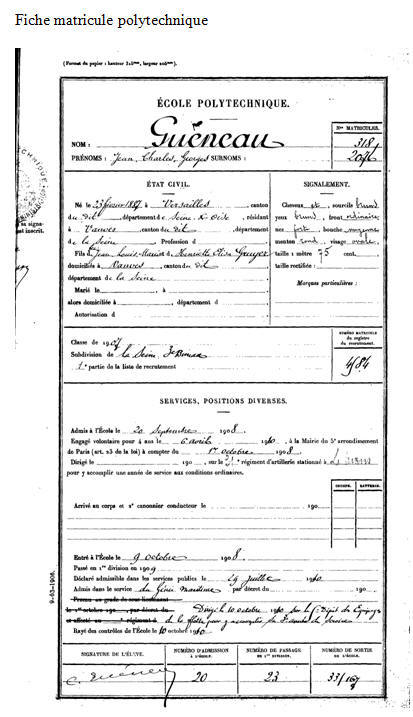 Fiche matricule polytechnique
(Format du papier : hauteur 315mm, largeur 206mm.)
ÉCOLE POLYTECHNIQUE.
NOS MATRICULES.
NOM : Guéneau 318
PRÉNOMS : Jean, Charles, Georges SURNOMS : 2076
ÉTAT CIVIL.
Né le 23 février 1887 à Versailles, canton
du dit, département de Seine & Oise, résidant
à Vanves, canton du dit, département
de la Seine Profession d
Fils de Jean Louis Marie et de Henriette Elisa
domiciliés à Vanves, canton du dit
département de la Seine
Marié le , à
alors domiciliée à , département d
Autorisation d
SIGNALEMENT.
Cheveux et sourcils brund
yeux brund, front ordinaire
nez fort, bouche moyenne
menton rond, visage ovale.
taille : 1 mètre 75 cent.
taille rectifiée :
Marques particulières :
sa signa
inscrit.
Classe de 1907
Subdivision de la Seine, 3e Bureau
1e partie de la liste de recrutement
NUMÉRO MATRICULE
du registre
du recrutement.
4584
SERVICES, POSITIONS DIVERSES.
Admis à l'École le 20 septembre 1908.
Engagé volontaire pour 4 ans le 6 avril 1910, à la Mairie du 5e arrondissement
de Paris (art. 23 de la loi) à compter du 1er octobre 1908
Dirigé le 190 , sur le 31e régiment d'artillerie stationné à
pour y accomplir une année de service aux conditions ordinaires.
GROUPE. BATTERIE.
Arrivé au corps et 2e canonnier conducteur le 190
Entré à l'École le 9 octobre 1908.
Passé en 1re division en 1909
Déclaré admissible dans les services publics le 29 juillet 1910
Admis dans le service du Génie maritime par décret du 190
Promu au grade de sous-lieutenant
le 1er octobre 190 , par décret du Dirigé le 10 octobre 1910 sur le Dépôt des Equipages
et affecté au régiment d de la flotte pour y accomplir sa 2e année de service
Rayé des contrôles de l'École le 10 octobre 1910
9-63-1908.
SIGNATURE DE L'ÉLÈVE.
NUMÉRO D'ADMISSION
À L'ÉCOLE.
NUMÉRO DE PASSAGE
EN 1re DIVISION.
NUMÉRO DE SORTIE
DE L'ÉCOLE.
C. Guéneau 20 23 33/167